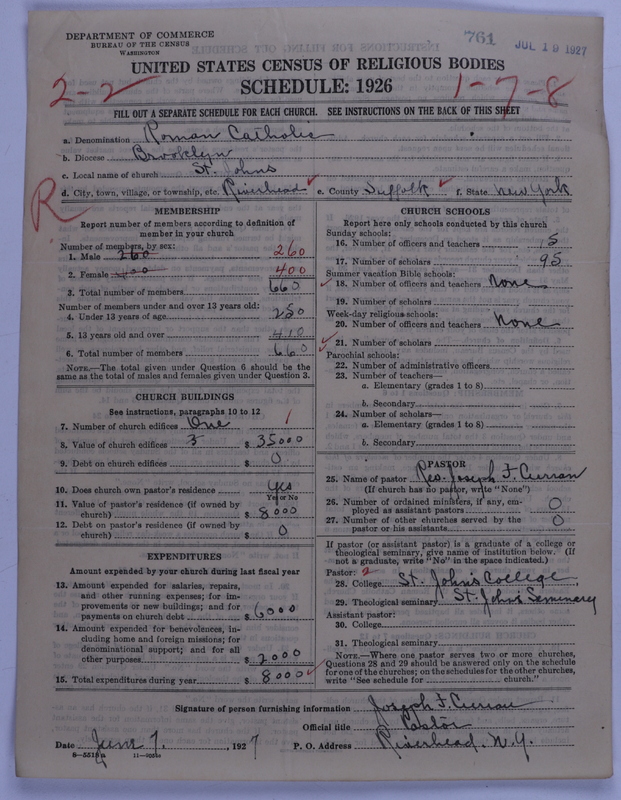 DEPARTMENT OF COMMERCE
BUREAU OF THE CENSUS
WASHINGTON
761
JUL 19 1927
UNITED STATES CENSUS OF RELIGIOUS BODIES
SCHEDULE: 1926
2-2
1-7-8
FILL OUT A SEPARATE SCHEDULE FOR EACH CHURCH. SEE INSTRUCTIONS ON THE BACK OF THIS SHEET
a. Denomination Roman Catholic
b. Diocese Brooklyn
c. Local name of church St. Johns
d. City, town, village, or township, etc. Riverhead e. County Suffolk f. State New York
R
MEMBERSHIP
Report number of members according to definition of
member in your church
Number of members, by sex:
1. Male 260 260
2. Female 400 400
3. Total number of members 660
Number of members under and over 13 years old:
4. Under 13 years of age 250
5. 13 years old and over 410
6. Total number of members 660
NOTE.—The total given under Question 6 should be
same as the total of males and females given under Question 3.
CHURCH BUILDINGS
See instructions, paragraphs 10 to 12
7. Number of church edifices One 1
8. Value of church edifices 3 $ 35000
9. Debt on church edifices $ 0
10. Does church own pastor's residence Yes
Yes or No
11. Value of pastor's residence (if owned by
church) $ 8000
12. Debt on pastor's residence (if owned by
church) $ 0
EXPENDITURES
Amount expended by your church during last fiscal year
13. Amount expended for salaries, repairs,
and other running expenses; for im-
provements or new buildings; and for
payments on church debt $ 6000
14. Amount expended for benevolences, in-
cluding home and foreign missions; for
denominational support; and for all
other purposes $ 2000
15. Total expenditures during year $ 8000
CHURCH SCHOOLS
Report here only schools conducted by this church
Sunday schools:
16. Number of officers and teachers 5
17. Number of scholars 95
Summer vacation Bible schools:
18. Number of officers and teachers none
19. Number of scholars
Week-day religious schools:
20. Number of officers and teachers None
21. Number of scholars
Parochial schools:
22. Number of administrative officers
23. Number of teachers—
a. Elementary (grades 1 to 8)
b. Secondary
24. Number of scholars—
a. Elementary (grades 1 to 8)
b. Secondary
PASTOR
25. Name of pastor Rev. Joseph F. Curran
(If church has no pastor, write "None")
26. Number of ordained ministers, if any, em-
ployed as assistant pastors 0
27. Number of other churches served by the
pastor or his assistants 0
If pastor (or assistant pastor) is a graduate of a college or
theological seminary, give name of institution below. (If
not a graduate, write "No" in the space indicated.)
Pastor: 2
28. College St. John's College
29. Theological seminary St. John's Seminary
Assistant pastor:
30. College
31. Theological seminary
NOTE.—Where one pastor serves two or more churches,
Questions 28 and 29 should be answered only on the schedule
for one of the churches; on the schedules for the other churches,
write "See schedule for church."
Signature of person furnishing information Joseph F. Curran
Official title Pastor
Date June 7, 1927 P. O. Address Riverhead, N.Y.